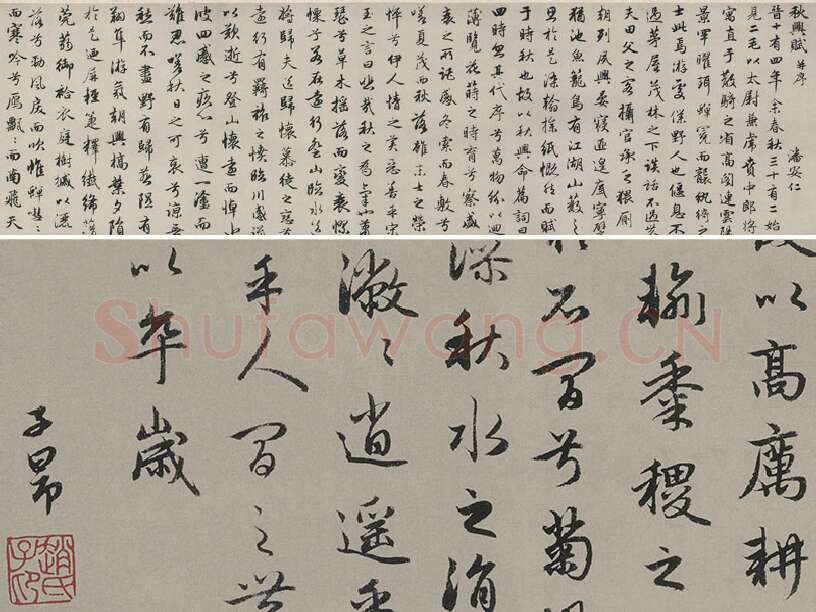 秋興賦 并序 潘安仁
晉十有四年余春秋三十有二始
見二毛以太尉掾兼虎賁中郎將
寓直于散騎之省高閣連雲陽
景罕曜珥蟬冕而襲紈綺之
士此焉游處僕野人也偃息不
過茅屋茂林之下談話不過農
夫田父之客攝官承乏猥廁
朝列夙興晏寢匪遑底寧譬
猶池魚籠鳥有江湖山藪之
思於是染翰操紙慨然而賦
于時秋也故以秋興命篇詞曰
四時忽其代序兮萬物紛以迴
薄覽花蒔之時育兮察盛
衰之所託感冬索而春敷兮
嗟夏茂而秋落雖末士之榮
悴兮伊人情之美惡善乎宋
玉之言曰悲哉秋之為氣也蕭
瑟兮草木搖落而變衰憭
慄兮若在遠行登山臨水送
將歸夫送歸懷慕徒之戀兮
遠行有羈旅之憤臨川感流
以歎逝兮登山懷遠而悼近
彼四慼之疚心兮遭一塗而
難忍嗟秋日之可哀兮諒無
愁而不盡野有歸燕隰有
翔隼游氣朝興槁葉夕隕
於是迺屏輕箑釋纖絺藉
莞蒻御袷衣庭樹摵以灑
落兮勁風戾而吹帷蟬嘒〻
而寒吟兮雁飄〻而南飛天
以高厲耕
輸黍稷之
石間兮菊
深秋水之涓
澉〻逍遙乎
乎人間之世
以卒歲
子昂
趙氏子昂
Shufawang.CN